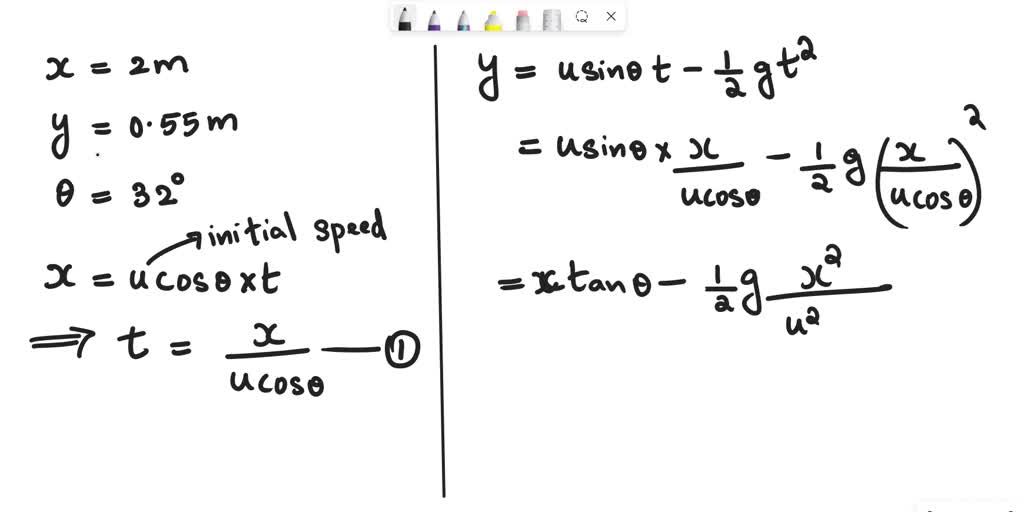 x = 2m
y = 0.55m
θ = 32°
initial speed
x = ucosθ×t
⟹ t = x/ucosθ — ①
y = usinθ t − 1/2 gt²
= usinθ × x/ucosθ − 1/2 g (x/ucosθ)²
= x tanθ − 1/2 g x²/u²